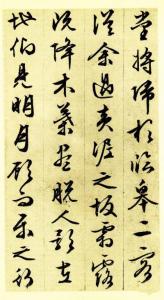 堂將歸於臨皋二客
從余過黃泥之坂霜露
既降木葉盡脫人影在
地仰見明月顧而樂之行